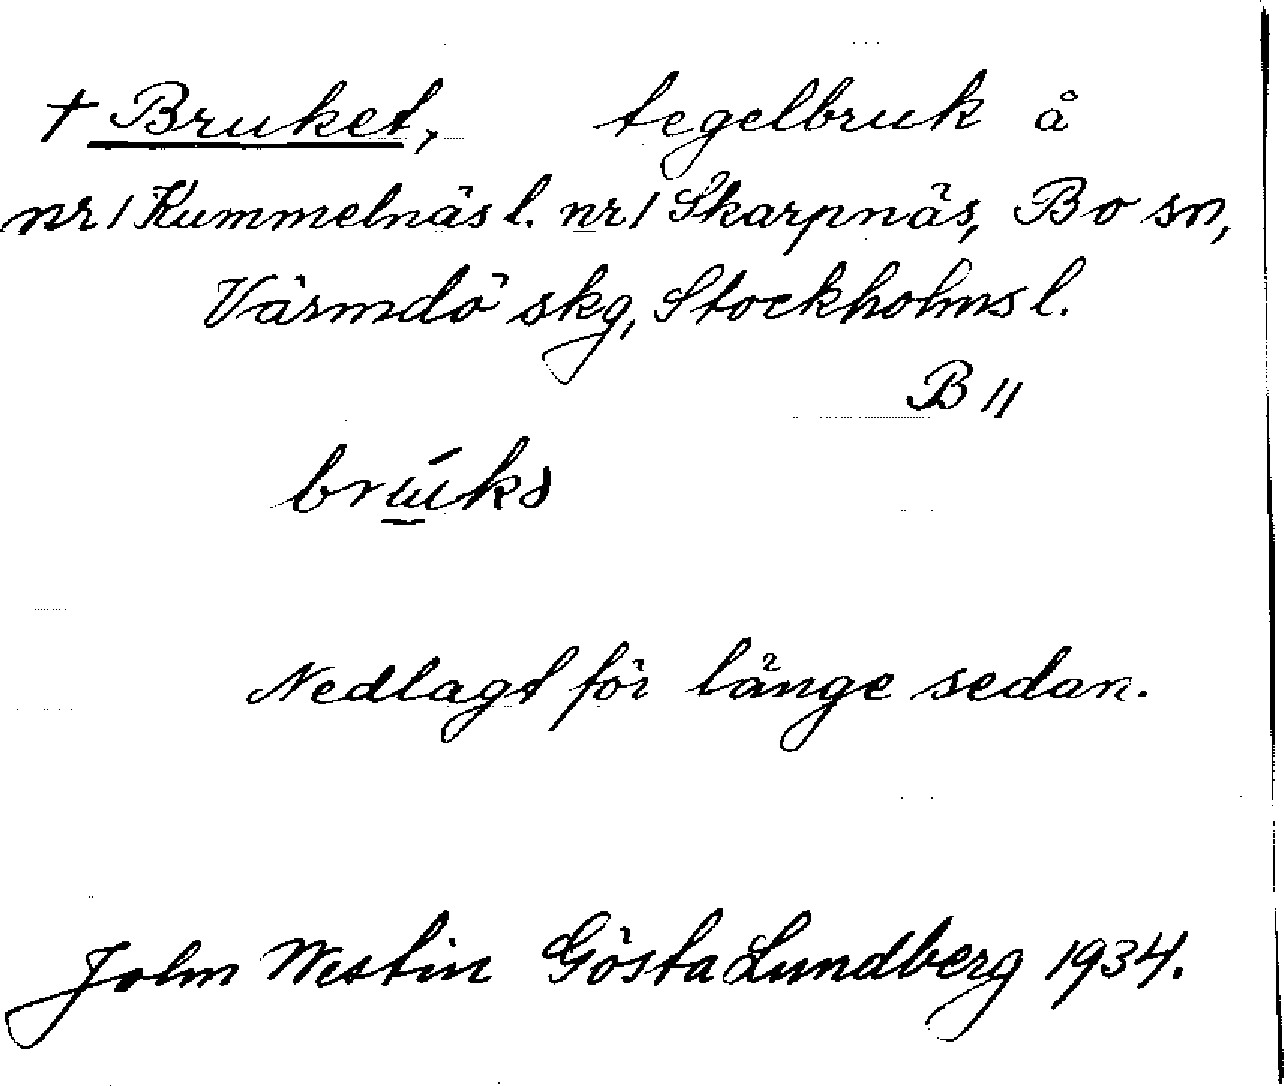 † Bruket, tegelbruk å
nr 1 Kummelnäs l. nr 1 Skarpnäs, Bo sn,
Värmdö skg, Stockholms l.
B 11
brúks
Nedlagt för länge sedan.
John Westin Gösta Lundberg 1934.